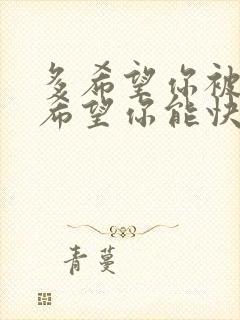 多希望你被
希望你能快
青蔓